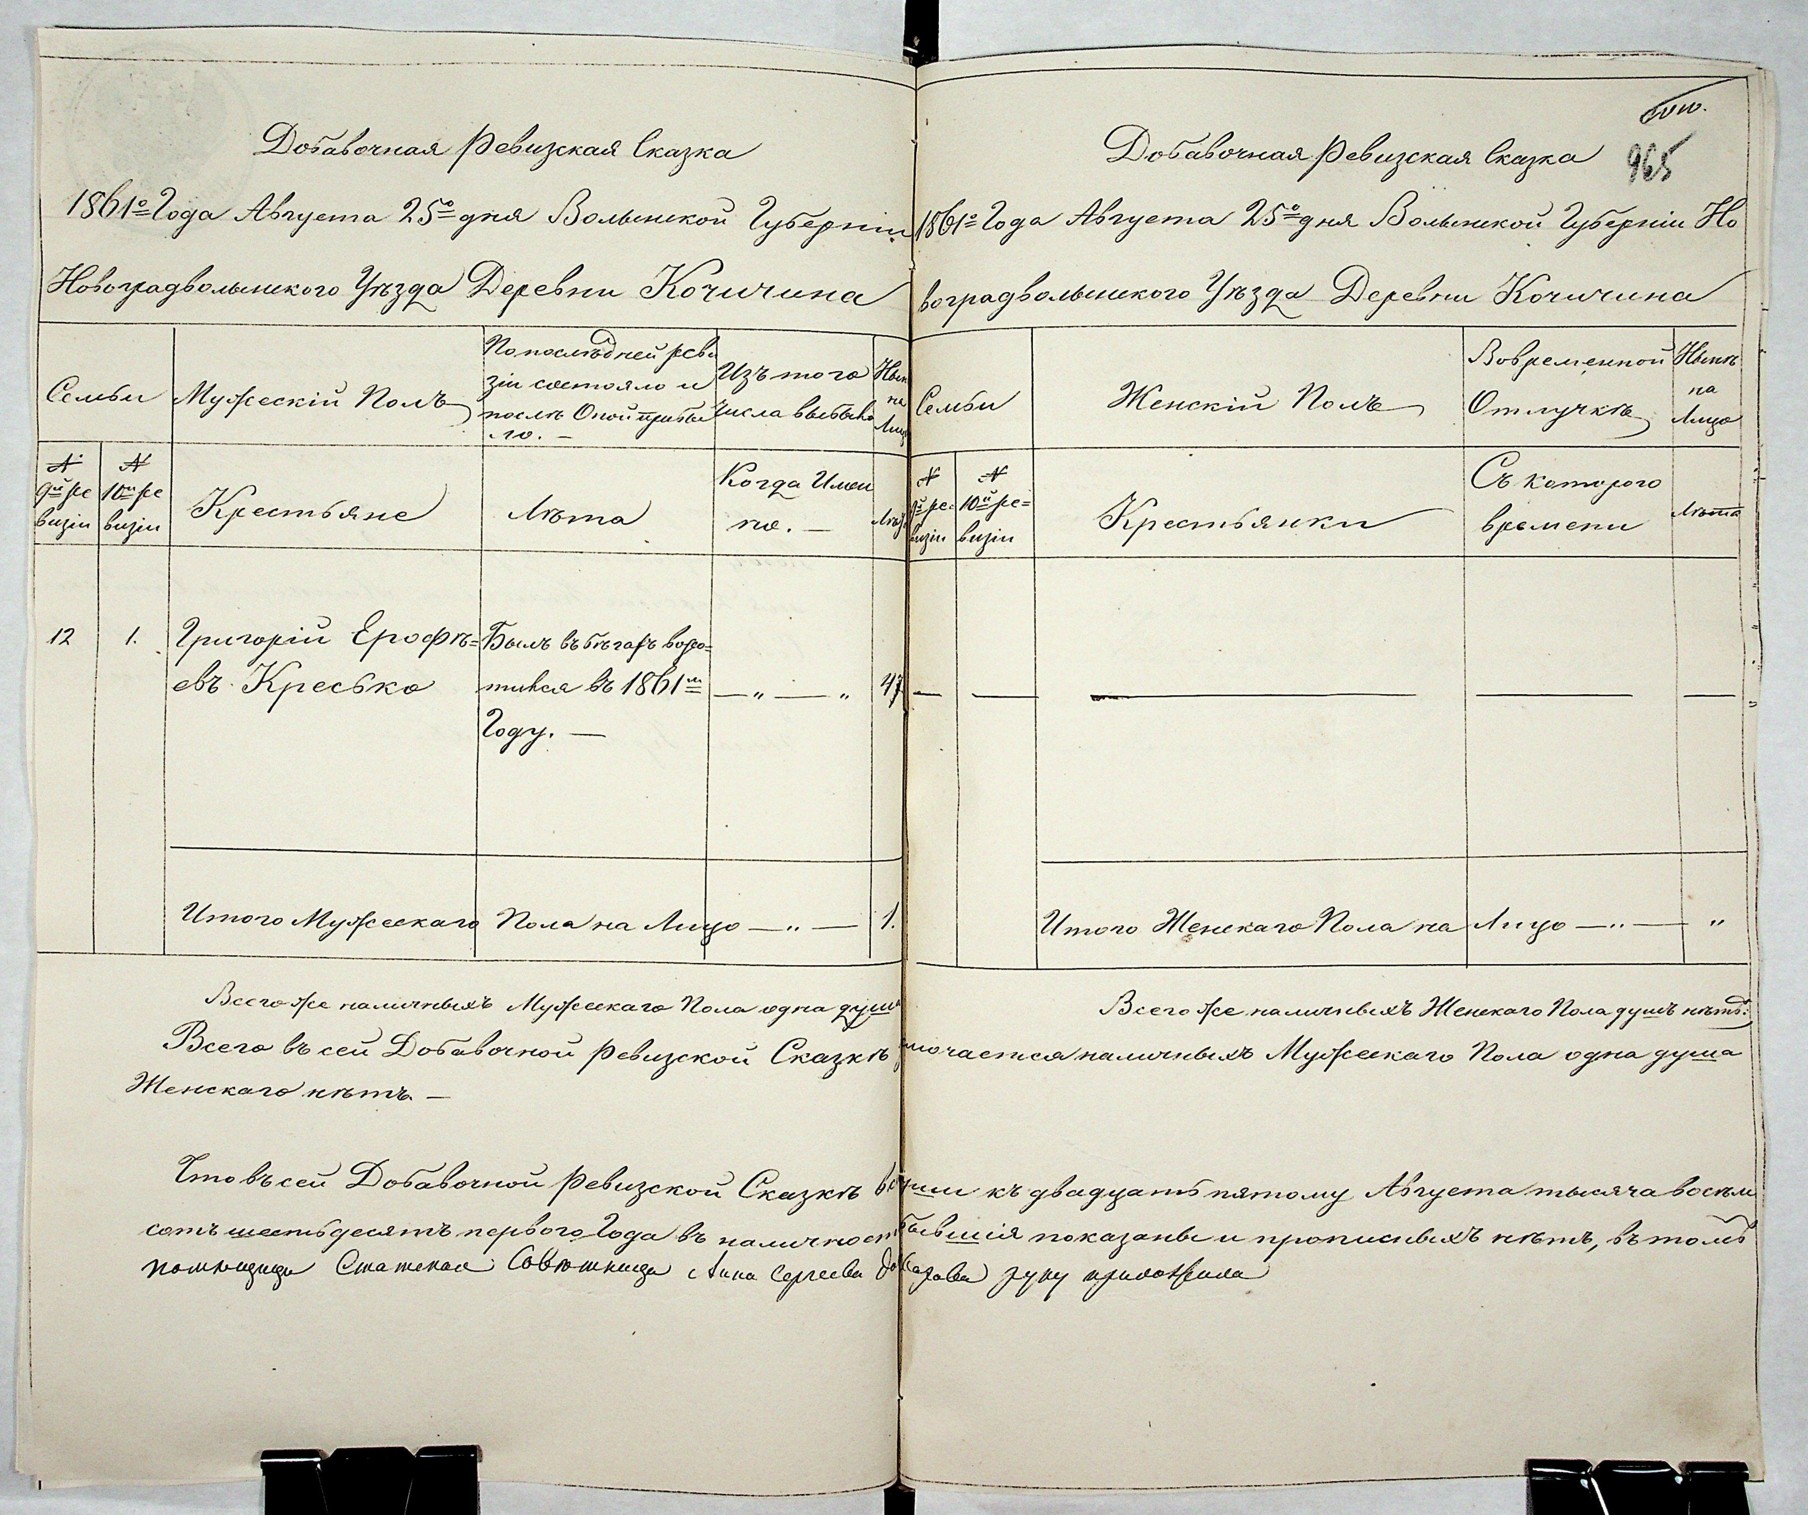 Добавочная Ревизская Сказка
1861го Года Августа 25го дня Волынской Губерніи
Новоградволынского Уѣзда Деревни Кочичина
Семьи
Мужескій Полъ
По послѣдней реви
зіи состояло и
послѣ Оной прибы
ло. —
Изъ того
числа выбыло
Нынѣ
на
Лицо
№
9й ре
визіи
№
10й ре
визіи
Крестьяне
Лѣта
Когда Имен
но. —
Лѣта
12
1.
Григорій Ерофѣ=
евъ Кресько
Былъ въ бѣгахъ возро=
тился въ 1861м
Году. —
— „ — „
47
Итого Мужескаго Пола на Лицо — „ — 1.
Всего же наличныхъ Мужескаго Пола одна душа
Добавочная Ревизская Сказка
965
1861го Года Августа 25го дня Волынской Губерніи Но
воградволынского Уѣзда Деревни Кочичина
Семьи
Женскій Полъ
Во временной
Отлучкѣ
Нынѣ
на
Лицо
№
9й ре=
визіи
№
10й ре=
визіи
Крестьянки
Съ которого
времени
Лѣта
Итого Женскаго Пола на Лицо — „ — „
Всего же наличныхъ Женскаго Пола душъ нѣтъ.
Всего въ сей Добавочной Ревизской Сказкѣ ключается наличныхъ Мужескаго Пола одна душа
Женскаго нѣтъ. —
Что въ сей Добавочной Ревизской Сказкѣ всѣ души къ двадцать пятому Августа тысяча восѣм
сотъ шестьдесятъ первого Года въ наличности бывшія показаны и прописныхъ нѣтъ, въ томъ
помѣщица Статская Совѣтница Анна Сергеева руку приложила